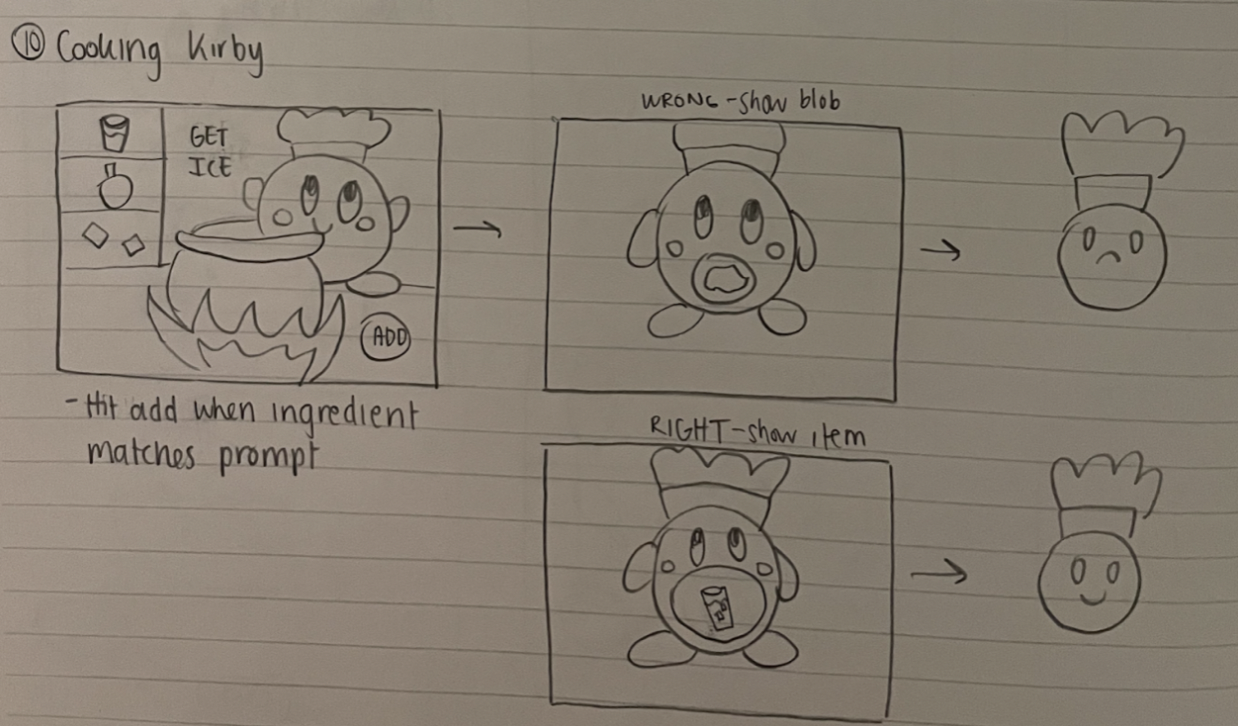 10 Cooking Kirby
GET
ICE
ADD
- Hit add when ingredient
matches prompt
WRONG - show blob
RIGHT - show item